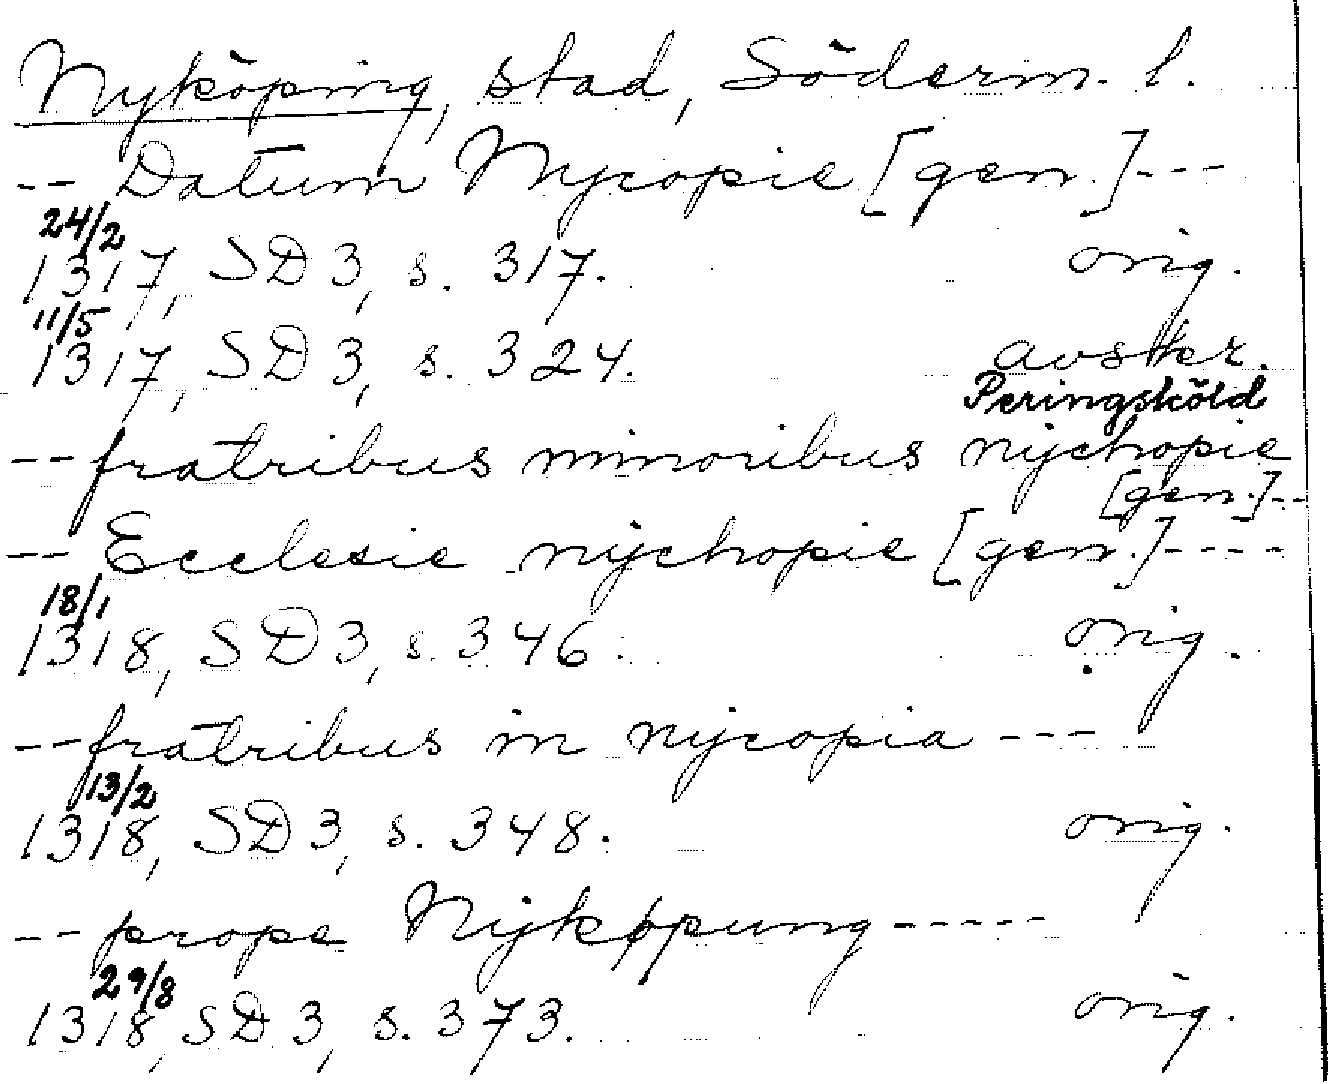 Nyköping, stad, Söderm. l.
-- Datum Nycopie [gen.]---
24/2
1317, SD 3, s. 317. orig.
11/5
1317, SD 3, s. 324. avskr.
Peringsköld
-- fratribus minoribus nychopie
[gen.]--
-- Ecclesie nychopie [gen.]----
18/1
1318, SD 3, s. 346. orig.
-- fratribus in nycopia ---
13/2
1318, SD 3, s. 348. orig.
-- prope Nykøpung -----
29/8
1318, SD 3, s. 373. orig.